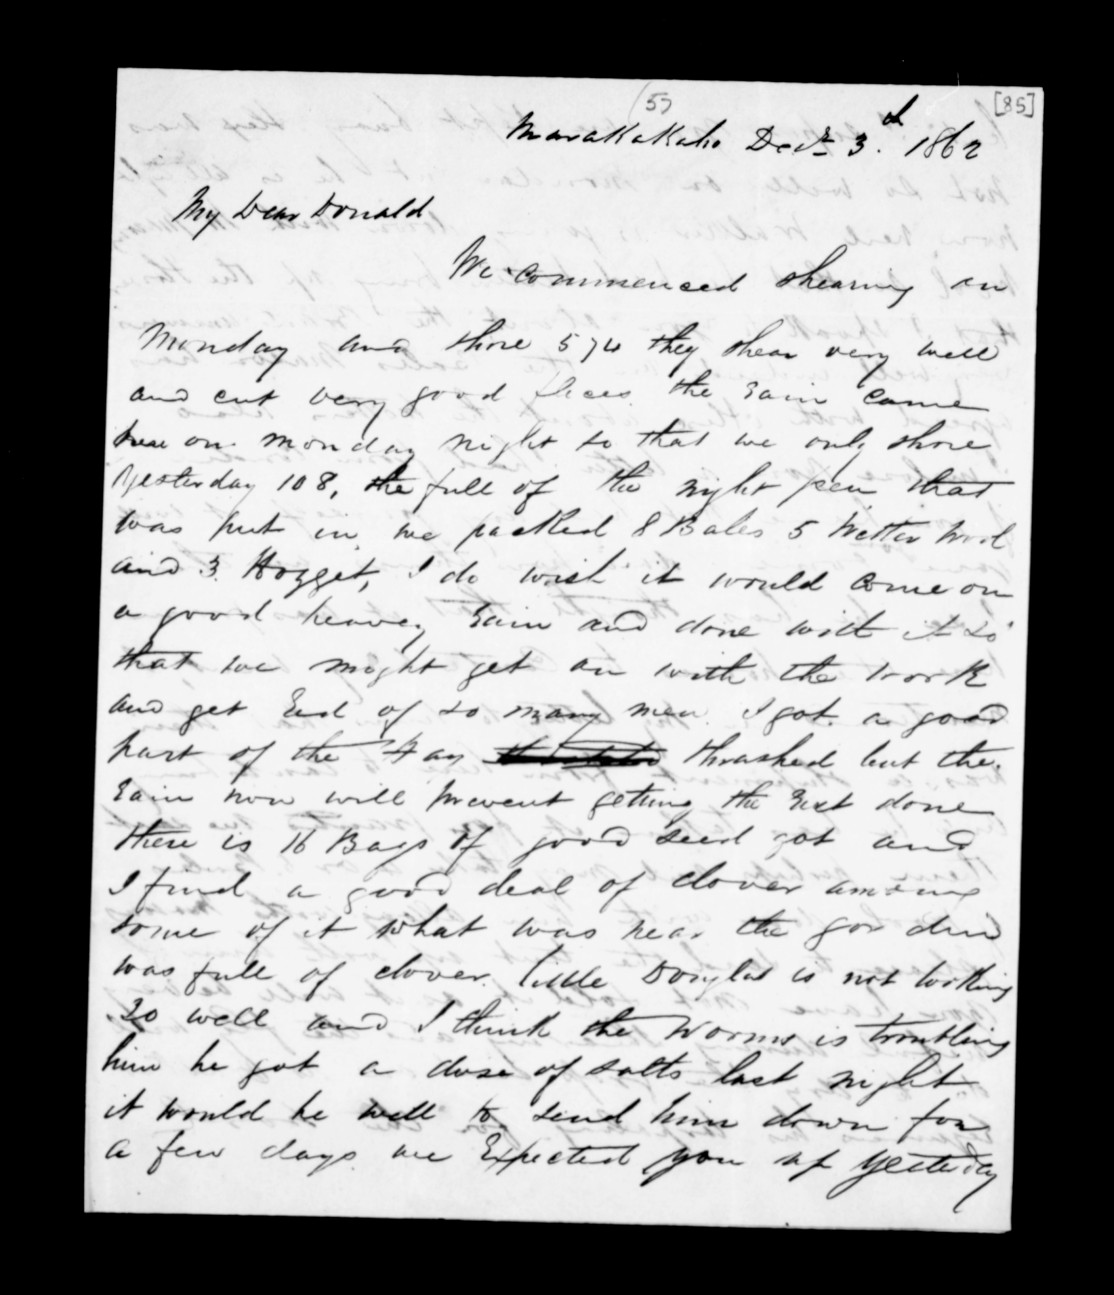 (5)
[85]
Marakakaho Decr 3.d 1862
My Dear Donald
We commenced shearing on
Monday and shore 574 they shear very well
and cut very good flices. the Rain came
here on Monday night so that we only shore
yesterday 108, the full of the night pen that
was put in. we packed 8 Bales 5 Wether Wool
and 3 Hogget, I do wish it would come on
a good heavey Rain and done with it so
that we might get on with the work
and get Rid of so many men. I got a good
part of the Hay thrashed but the
Rain now will prevent getting the Rest done
there is 16 Bags of good seed got and
I find a good deal of clover among
some of it what was near the gorden
was full of clover. little Douglas is not looking
so well and I think the Worms is troubling
him he got a dose of salts last night.
it would be well to send him down for
a few days. we Expected you up yesterday